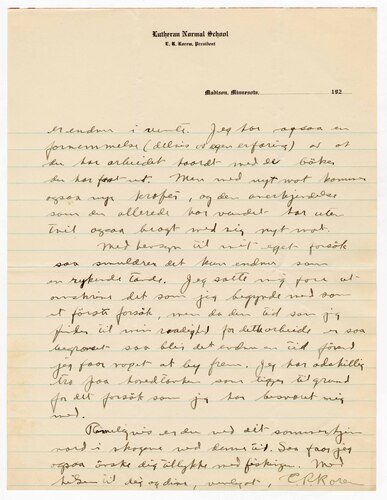 Lutheran Normal School
L. R. Korem, President
Madison, Minnesota, 192
er endnu i vente. Jeg har ogsaa en
fornemmelse (delvis av egen erfaring) av at
du har arbeidet haardt med de bøker
du har faat ut. Men med nyt mot kommer
ogsaa nye kræfter, og den anerkjendelse
som du allerede har vundet har uten
tvil ogsaa bragt med sig nyt mot.
Med hensyn til mit eget forsøk
saa smuldrer det kun endnu som
en rykende tande. Jeg satte mig fore at
omskrive det som jeg begyndte med som
et første forsøk, men da den tid som jeg
finder til min raadighet for dette arbeide er saa
begrænset saa blev det endnu en tid førend
jeg faar noget at by frem. Jeg har adskillig
tro paa hovedtanken som ligger til grund
for det forsøk som jeg har besværet mig
med.
er du ved dit sommerhjem
nord i skogene ved denne tid. Saa faar jeg
ogsaa ønske dig tillykke med fiskingen. Med
hilsen til dig og dine, venligst,